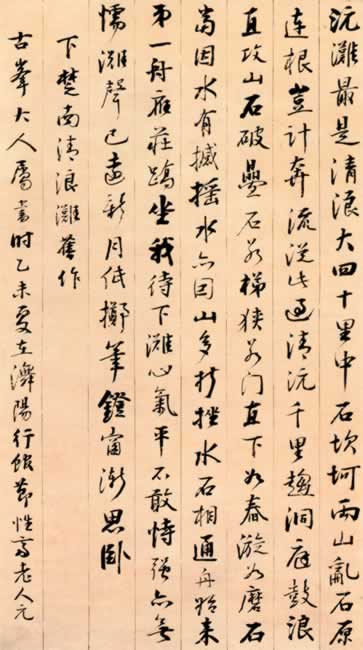 沅灘最是清浪大四十里中石坎坷兩山亂石原
連根豈計奔流從此過清沅千里趨洞庭鼓浪
直攻山石破疊石若梯狹若门直下如舂漩如磨石
當因水有撼搖水亦因山多折挫水石相通舟始来
第一舟應莊蹻坐我待下灘心氣平不敢恃强亦無
懦灘聲已遠新月低擲筆鐙窗漸思臥
下楚南清浪灘舊作
古峯大人屬書时乙未夏在濟陽行館節性齋老人元